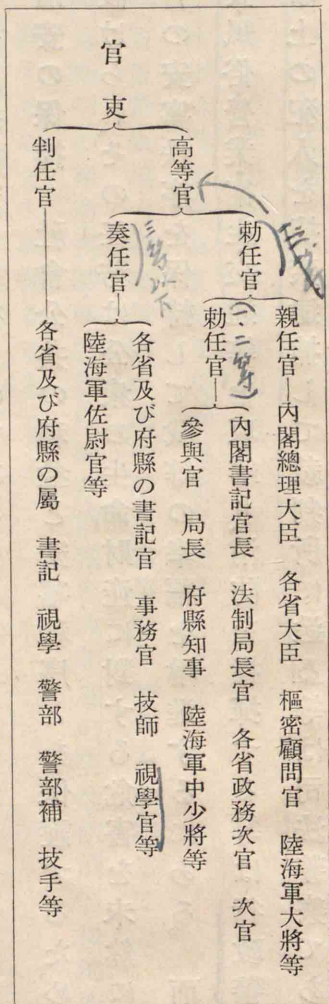 官吏
高等官
勅任官
親任官―內閣總理大臣　各省大臣　樞密顧問官　陸海軍大將等
(一・二等)
勅任官―
內閣書記官長　法制局長官　各省政務次官　次官
參與官　局長　府縣知事　陸海軍中少將等
三等以下
奏任官―
各省及び府縣の書記官　事務官　技師　視學官等
陸海軍佐尉官等
判任官――各省及び府縣の屬　書記　視學　警部　警部補　技手等